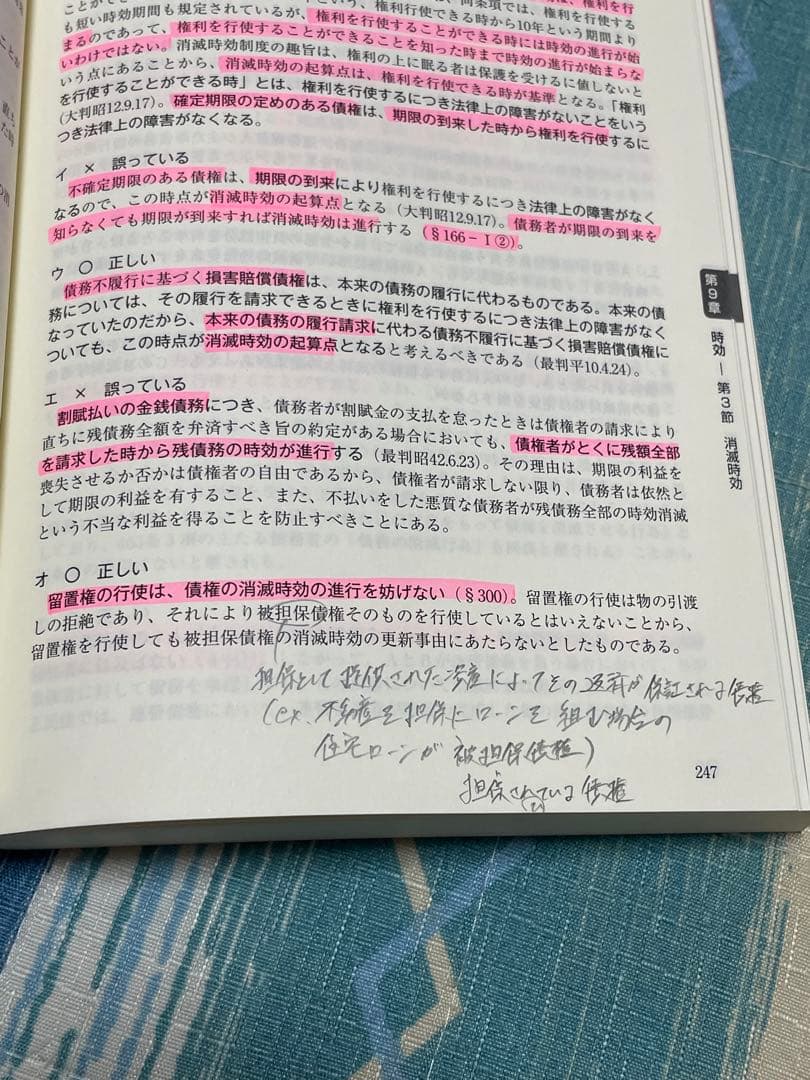 ことができ
同条項では、権利を行使する
も短い時効期間も規定されているが、権利行使できる時から10年という期間より
まるのであって、権利を行使することができる時には時効の進行が始
いわけではない。消滅時効制度の趣旨は、権利の上に眠る者は保護を受けるに値しないと
いう点にあることから、消滅時効の起算点は、権利を行使できる時が基準となる。「権利
を行使することができる時」とは、権利を行使するにつき法律上の障害がないことをいう
(大判昭12.9.17)。確定期限の定めのある債権は、期限の到来した時から権利を行使するに
つき法律上の障害がなくなる。
イ × 誤っている
不確定期限のある債権は、期限の到来により権利を行使するにつき法律上の障害がなく
なるので、この時点が消滅時効の起算点となる(大判昭12.9.17)。債務者が期限の到来を
知らなくても期限が到来すれば消滅時効は進行する(§166-Ⅰ②)。
ウ ○ 正しい
債務不履行に基づく損害賠償債権は、本来の債務の履行に代わるものである。本来の債
務については、その履行を請求できるときに権利を行使するにつき法律上の障害がなく
なっていたのだから、本来の債務の履行請求に代わる債務不履行に基づく損害賠償債権に
ついても、この時点が消滅時効の起算点となると考えるべきである(最判平10.4.24)。
エ × 誤っている
割賦払いの金銭債務につき、債務者が割賦金の支払を怠ったときは債権者の請求により
直ちに残債務全額を弁済すべき旨の約定がある場合においても、債権者がとくに残額全部
を請求した時から残債務の時効が進行する(最判昭42.6.23)。その理由は、期限の利益を
喪失させるか否かは債権者の自由であるから、債権者が請求しない限り、債務者は依然と
して期限の利益を有すること、また、不払いをした悪質な債務者が残債務全部の時効消滅
という不当な利益を得ることを防止すべきことにある。
オ ○ 正しい
留置権の行使は、債権の消滅時効の進行を妨げない(§300)。留置権の行使は物の引渡
しの拒絶であり、それにより被担保債権そのものを行使しているとはいえないことから、
留置権を行使しても被担保債権の消滅時効の更新事由にあたらないとしたものである。
担保として提供された資産によってその返済が保証される債権
(ex. 不動産を担保にローンを組む場合の
住宅ローンが被担保債権)
担保されている債権
247
第9章
時効―第3節 消滅時効